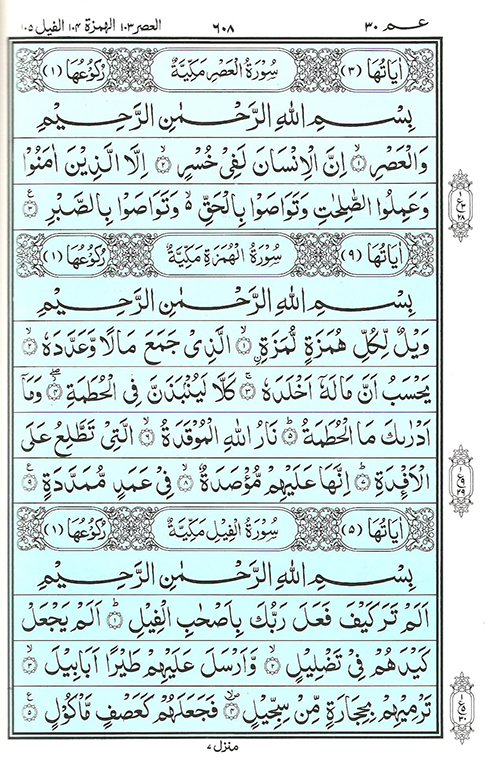 عـــم ٣٠ ٦٠٨ العصر ١٠٣ الهمزة ١٠٤ الفيل ١٠٥
اٰيَاتُهَا (٣) سُوْرَةُ الْعَصْرِ مَكِّيَّةٌ رُكُوْعُهَا (١)
بِسْمِ اللّٰهِ الرَّحْمٰنِ الرَّحِيْمِ
وَالْعَصْرِۙ ۝١ اِنَّ الْاِنْسَانَ لَفِيْ خُسْرٍۙ ۝٢ اِلَّا الَّذِيْنَ اٰمَنُوْا
وَعَمِلُوا الصّٰلِحٰتِ وَتَوَاصَوْا بِالْحَقِّ ۙ وَتَوَاصَوْا بِالصَّبْرِ ۝٣
اٰيَاتُهَا (٩) سُوْرَةُ الْهُمَزَةِ مَكِّيَّةٌ رُكُوْعُهَا (١)
بِسْمِ اللّٰهِ الرَّحْمٰنِ الرَّحِيْمِ
وَيْلٌ لِّكُلِّ هُمَزَةٍ لُّمَزَةِۙ ۝١ اۨلَّذِيْ جَمَعَ مَالًا وَّعَدَّدَهٗۙ ۝٢
يَحْسَبُ اَنَّ مَالَهٗۤ اَخْلَدَهٗۚ ۝٣ كَلَّا لَيُنْۢبَذَنَّ فِي الْحُطَمَةِۖ ۝٤ وَمَاۤ
اَدْرٰىكَ مَا الْحُطَمَةُؕ ۝٥ نَارُ اللّٰهِ الْمُوْقَدَةُۙ ۝٦ الَّتِيْ تَطَّلِعُ عَلَى
الْاَفْـِٕدَةِؕ ۝٧ اِنَّهَا عَلَيْهِمْ مُّؤْصَدَةٌۙ ۝٨ فِيْ عَمَدٍ مُّمَدَّدَةٍ ۝٩
اٰيَاتُهَا (٥) سُوْرَةُ الْفِيْلِ مَكِّيَّةٌ رُكُوْعُهَا (١)
بِسْمِ اللّٰهِ الرَّحْمٰنِ الرَّحِيْمِ
اَلَمْ تَرَ كَيْفَ فَعَلَ رَبُّكَ بِاَصْحٰبِ الْفِيْلِؕ ۝١ اَلَمْ يَجْعَلْ
كَيْدَهُمْ فِيْ تَضْلِيْلٍۙ ۝٢ وَّاَرْسَلَ عَلَيْهِمْ طَيْرًا اَبَابِيْلَۙ ۝٣
تَرْمِيْهِمْ بِحِجَارَةٍ مِّنْ سِجِّيْلٍ۪ۙ ۝٤ فَجَعَلَهُمْ كَعَصْفٍ مَّاْكُوْلٍ ۝٥
منزل ٧